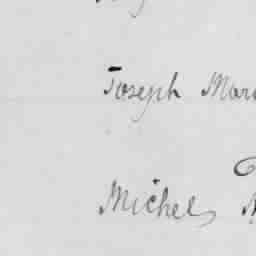 Joseph Mari
Michel,